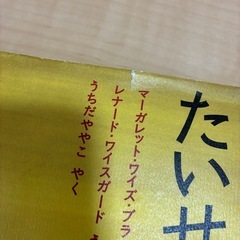 たいせ
マーガレット・ワイズ・ブラ
レナード・ワイスガード
うちだややこ やく